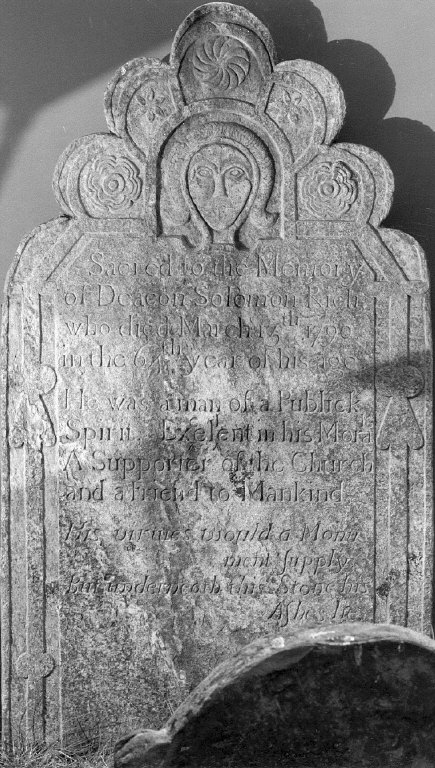 Sacred to the Memory
of Deacon Solomon Rich
who died March 13th 1790
in the 64th year of his age
He was a man of a Publick
Spirit, Exelent in his Mora
A Supporter of the Church
and a friend to Mankind
His virtues would a Monu
ment supply
But underneath this Stone his
Ashes lie